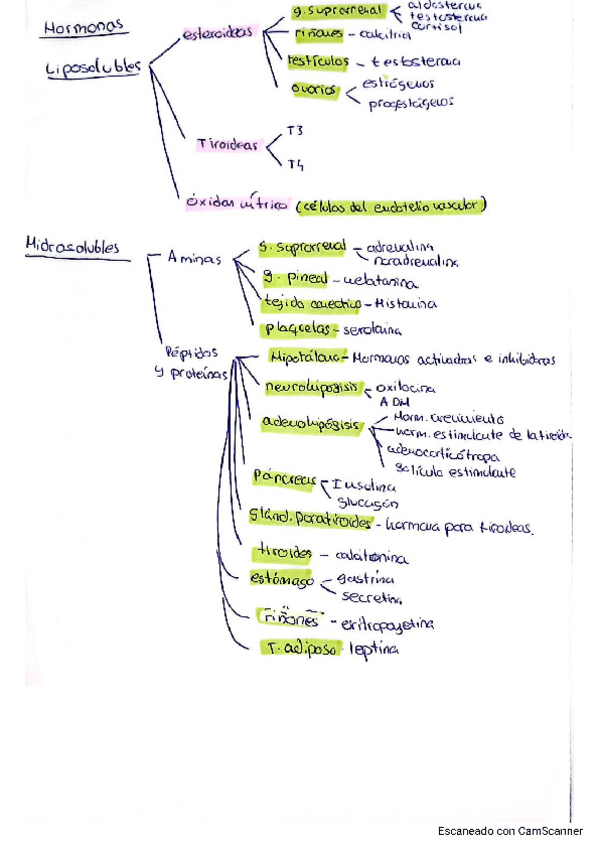 Hormonas
Liposolubles
esteroideas
g. suprarrenal
aldosterona
testosterona
cortisol
riñones - calcitriol
testículos - testosterona
ovarios
estrógenos
progestágenos
Tiroideas
T3
T4
óxidas nítrico (células del endotelio vascular)
Hidrosolubles
Aminas
g. suprarrenal - adrenalina
noradrenalina
g. pineal - melatonina
tejido conectivo - Histamina
plaquetas - serotonina
Péptidos
y proteínas
Hipotálamo - Hormonas activadoras e inhibidoras
neurohipófisis - oxitocina
ADH
adenohipófisis
Horm. crecimiento
horm. estimulante de la tiroides
adenocorticótropa
folículo estimulante
Páncreas - Insulina
glucagón
Gland. paratiroides - hormona para tiroideas.
tiroides - calcitonina
estómago - gastrina
secretina
riñones - eritropoyetina
T. adiposo - leptina
Escaneado con CamScanner